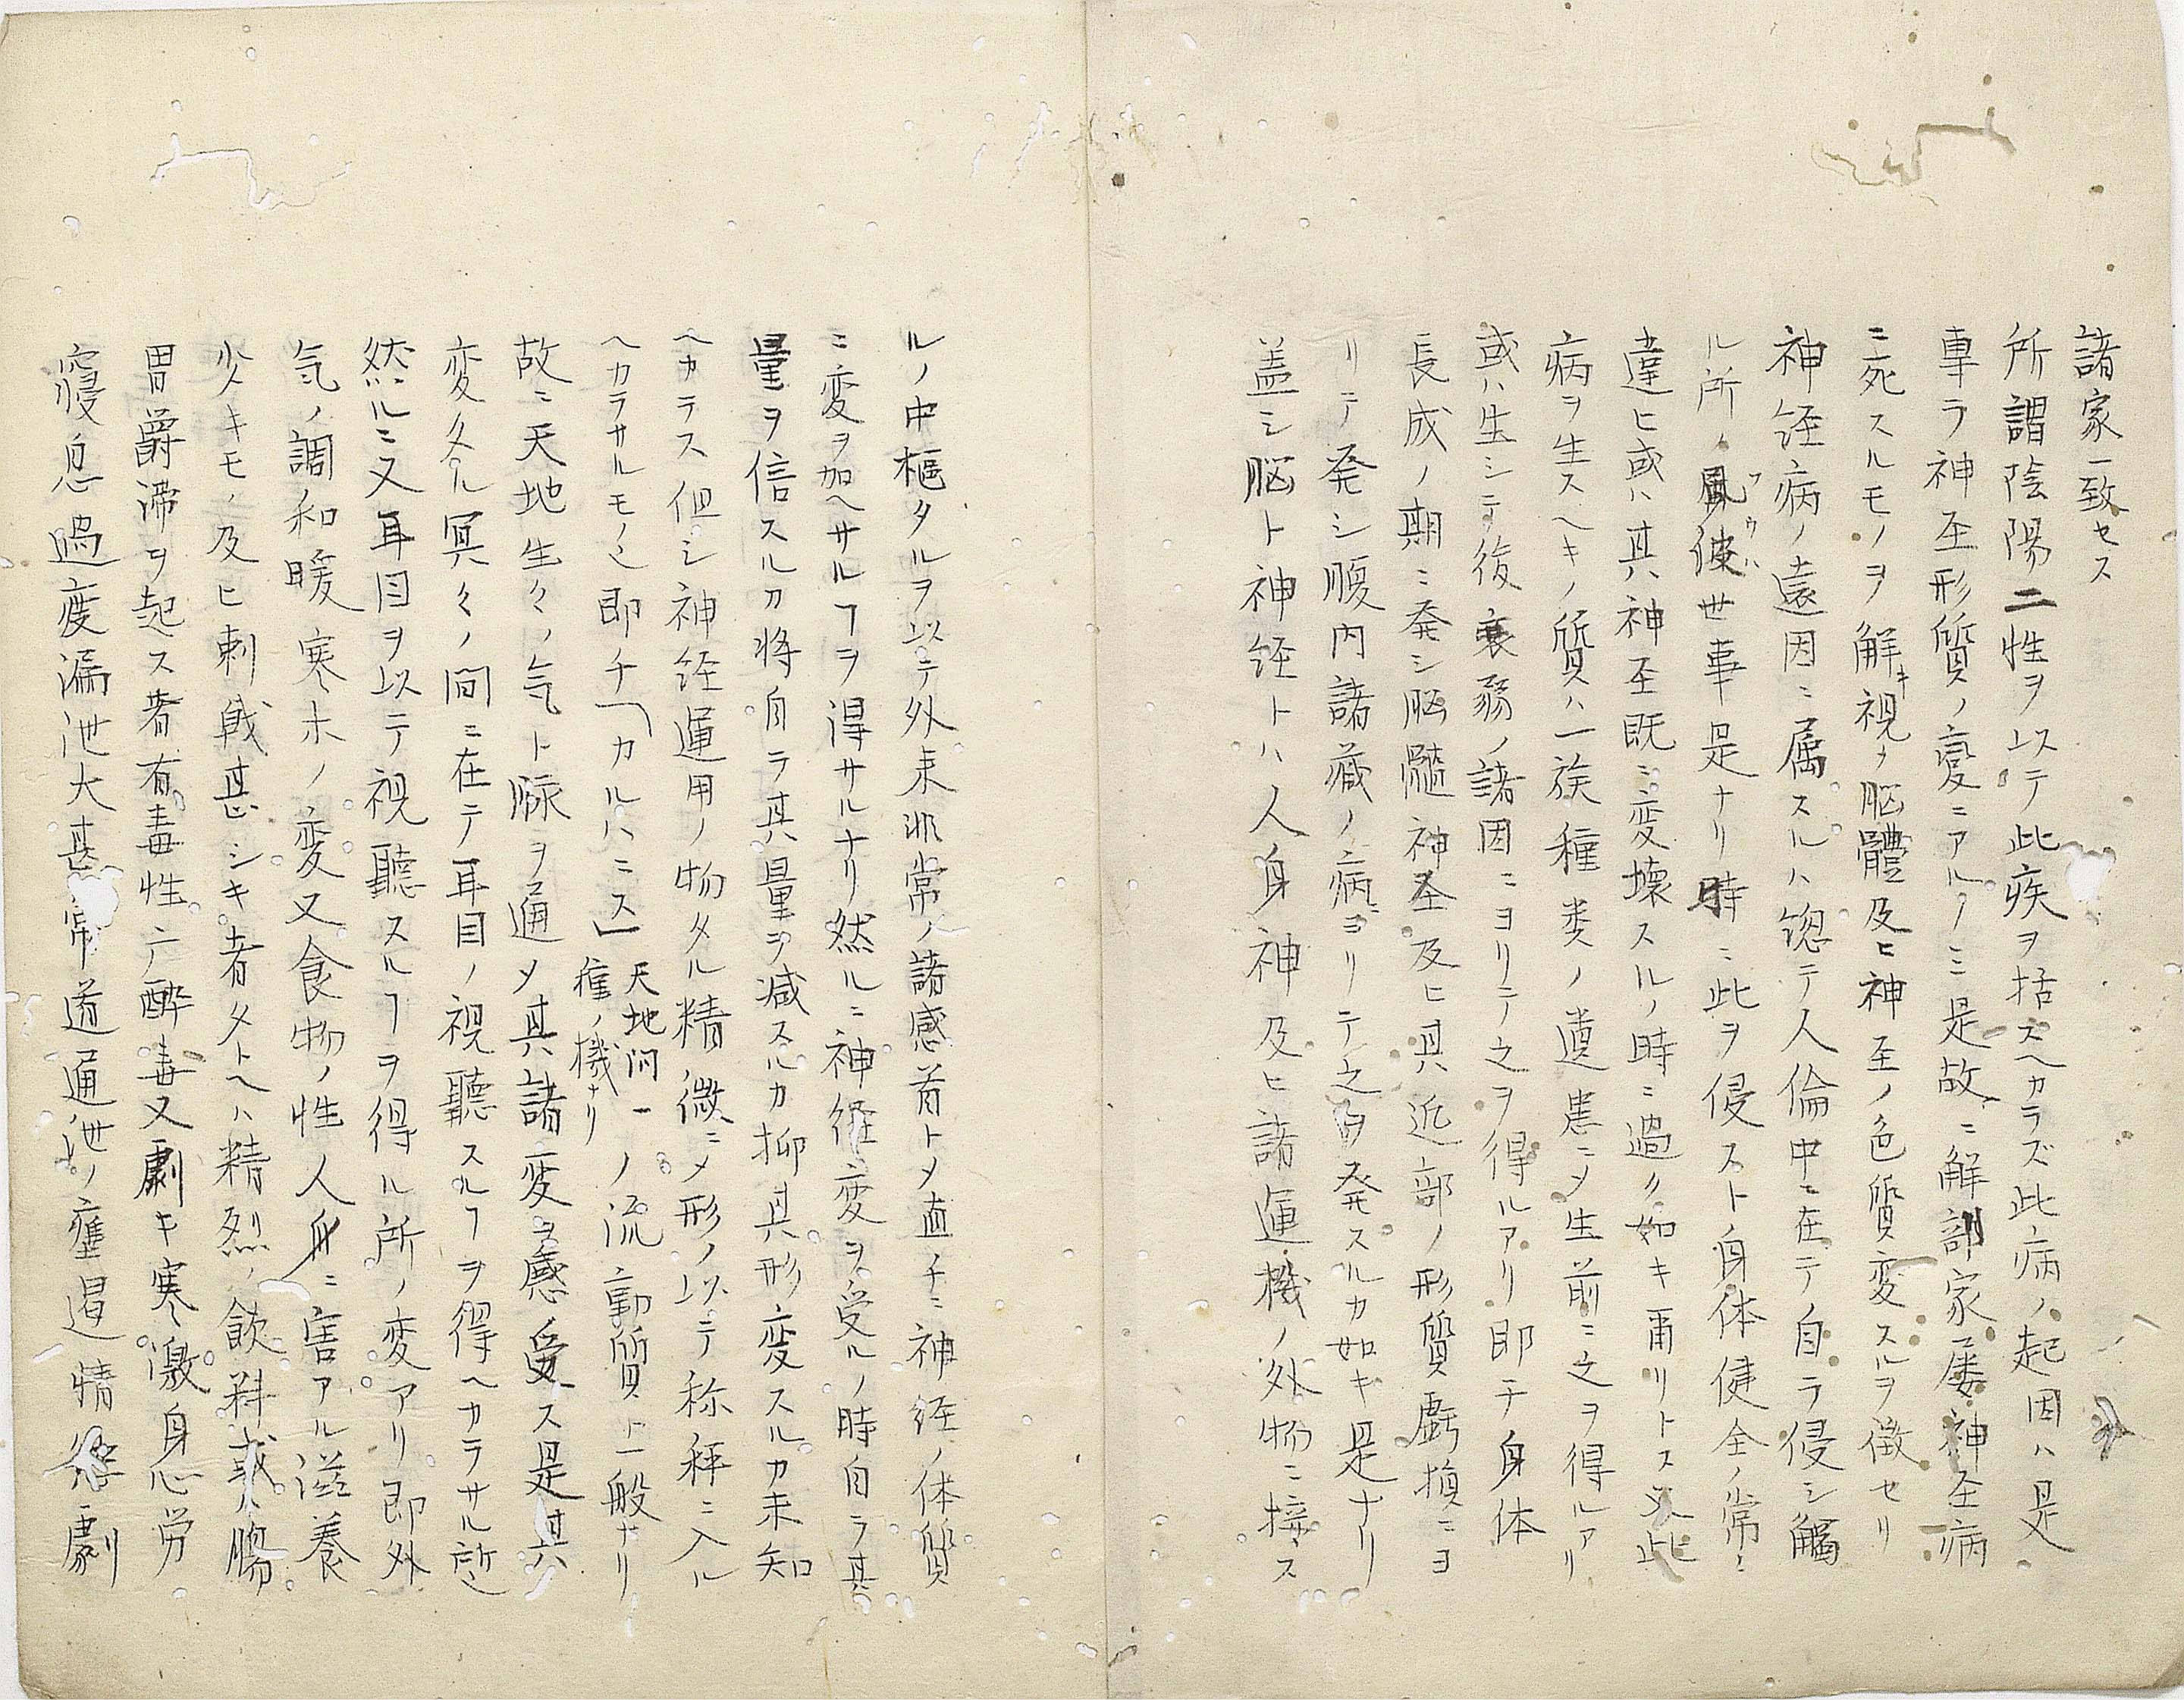 諸家一致セス
所謂陰陽二性ヲ以テ此疾ヲ括スヘカラズ此病ノ起因ハ是
専ラ神至形質ノ変ニアルノミ是故ニ解部家屡神至病
ニ死スルモノヲ解視キ脳體及ヒ神至ノ色質変スルヲ徴セリ
神経病ノ遠因ニ属スルハ総テ人倫中ニ在テ自ラ侵シ觸
ル所ノ風波世事是ナリ時ニ此ヲ侵スト身体健全ノ常ニ
違ヒ或ハ其神至既ニ変壊スルノ時ニ過ク如キ甫リトス又此
病ヲ生スヘキノ質ハ一族種类ノ遺患ニメ生前ニ之ヲ得ルアリ
或ハ生シテノ後衰弱ノ諸因ニヨリテ之ヲ得ルアリ即チ身体
長成ノ期ニ発シ脳髓神至及ヒ其近部ノ形質虧損ニヨ
リテ発シ腹内諸蔵ノ病ヨリテ之ヲ発スルカ如キ是ナリ
盖シ脳ト神経トハ人身神及ヒ諸運機ノ外物ニ接ス
ルノ中樞タルヲ以テ外来非常ノ諸感首トメ直チニ神経ノ体質
ニ変ヲ加ヘサルヿヲ得サルナリ然ルニ神経変ヲ受ルノ時自ラ其
量ヲ信スルカ将自ラ其量ヲ减スルカ抑其形変スルカ未知
ヘカラス但シ神経運用ノ物タル精微ニメ形ノ以テ称秤ニ入ル
ヘカラサルモノ也即チ「カルハニス」天地间一種ノ機ナリノ流動質ト一般ナリ
故ニ天地生々ノ気ト脉ヲ通メ其諸変ヲ感受ス是其
変冬ル冥々ノ間ニ在テ耳目ノ視聽スルヿヲ得ヘカラサル所也
然ルニ又耳目ヲ以テ視聽スルヿヲ得ル所ノ変アリ即外
気ノ調和暖寒ホノ変又食物ノ性人身ニ害アル滋養
少キモノ及ヒ刺戟甚シキ者タトヘハ精烈ノ飲料或ハ腸
胃爵滞ヲ起ス者有毒性亡酔毒又劇キ寒激身心労
寝息過度漏泄大甚常道通泄ノ壅遏情慾劇